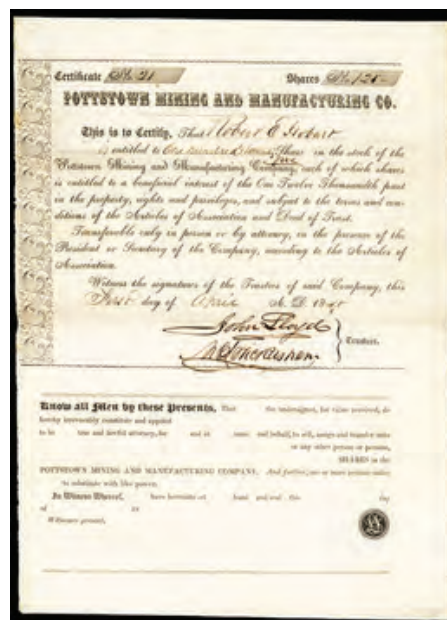 Certificate No. 21 Shares No. 125
POTTSTOWN MINING AND MANUFACTURING CO.
This is to Certify, That Robert E Hobart
is entitled to One hundred & twenty Share in the stock of the
five
Pottstown Mining and Manufacturing Company, each of which shares
is entitled to a beneficial interest of the One Twelve Thousandth part
in the property, rights and privileges, and subject to the terms and con-
ditions of the Articles of Association and Deed of Trust.
Transferable only in person or by attorney, in the presence of the
President or Secretary of the Company, according to the Articles of
Association.
Witness the signatures of the Trustees of said Company, this
First day of April A. D. 18
John Lloyd
Trustees.
Know all Men by these Presents, That the undersigned, for value received, do
hereby irrevocably constitute and appoint
to be true and lawful attorney, for and in name and behalf, to sell, assign and transfer unto
or any other person or persons,
SHARES in the
POTTSTOWN MINING AND MANUFACTURING COMPANY. And further, one or more persons under
to substitute with like power.
In Witness Whereof, have hereunto set hand and seal this day
of 18
Witnesses present,